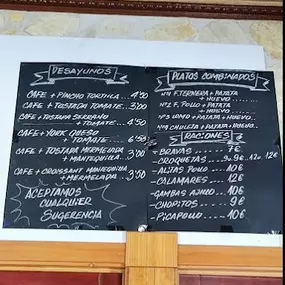 DESAYUNOS
CAFE + PINCHO TORTILLA... 4'50
CAFE + TOSTADA TOMATE... 3'00
CAFE + TOSTADA SERRANO
+ TOMATE... 4'50
CAFE + YORK QUESO
+ TOMATE...
CAFE + TOSTADA MERMELADA
+ MANTEQUILLA... 3'00
CAFE + CROISSANT MANTEQUILLA
+ MERMELADA... 3'50
ACEPTAMOS
CUALQUIER
SUGERENCIA
PLATOS COMBINADOS
Nº1 F. TERNERA + PATATA
+ HUEVO
Nº2 F. POLLO + PATATA
+ HUEVO
Nº3 LOMO + PATATA + HUEVO
Nº4 CHULETA + PATATA + HUEVO
RACIONES
- BRAVAS... 7€
- CROQUETAS... 12€
- ALITAS POLLO... 10€
- CALAMARES... 12€
- GAMBAS AJILLO... 10€
- CHOPITOS... 9€
- PICAPOLLO... 10€